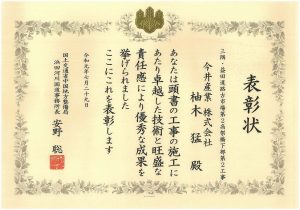 表彰状
三隅・益田道路古市場第2高架橋下部第2工事
今井産業 株式会社
柚木 猛 殿
あなたは頭書の工事の施工に
あたり卓越した技術と旺盛な
責任感により優秀な成果を
挙げられました
ここにこれを表彰します
令和元年七月二十九日
国土交通省中国地方整備局
浜田河川国道事務所長
安野 聡